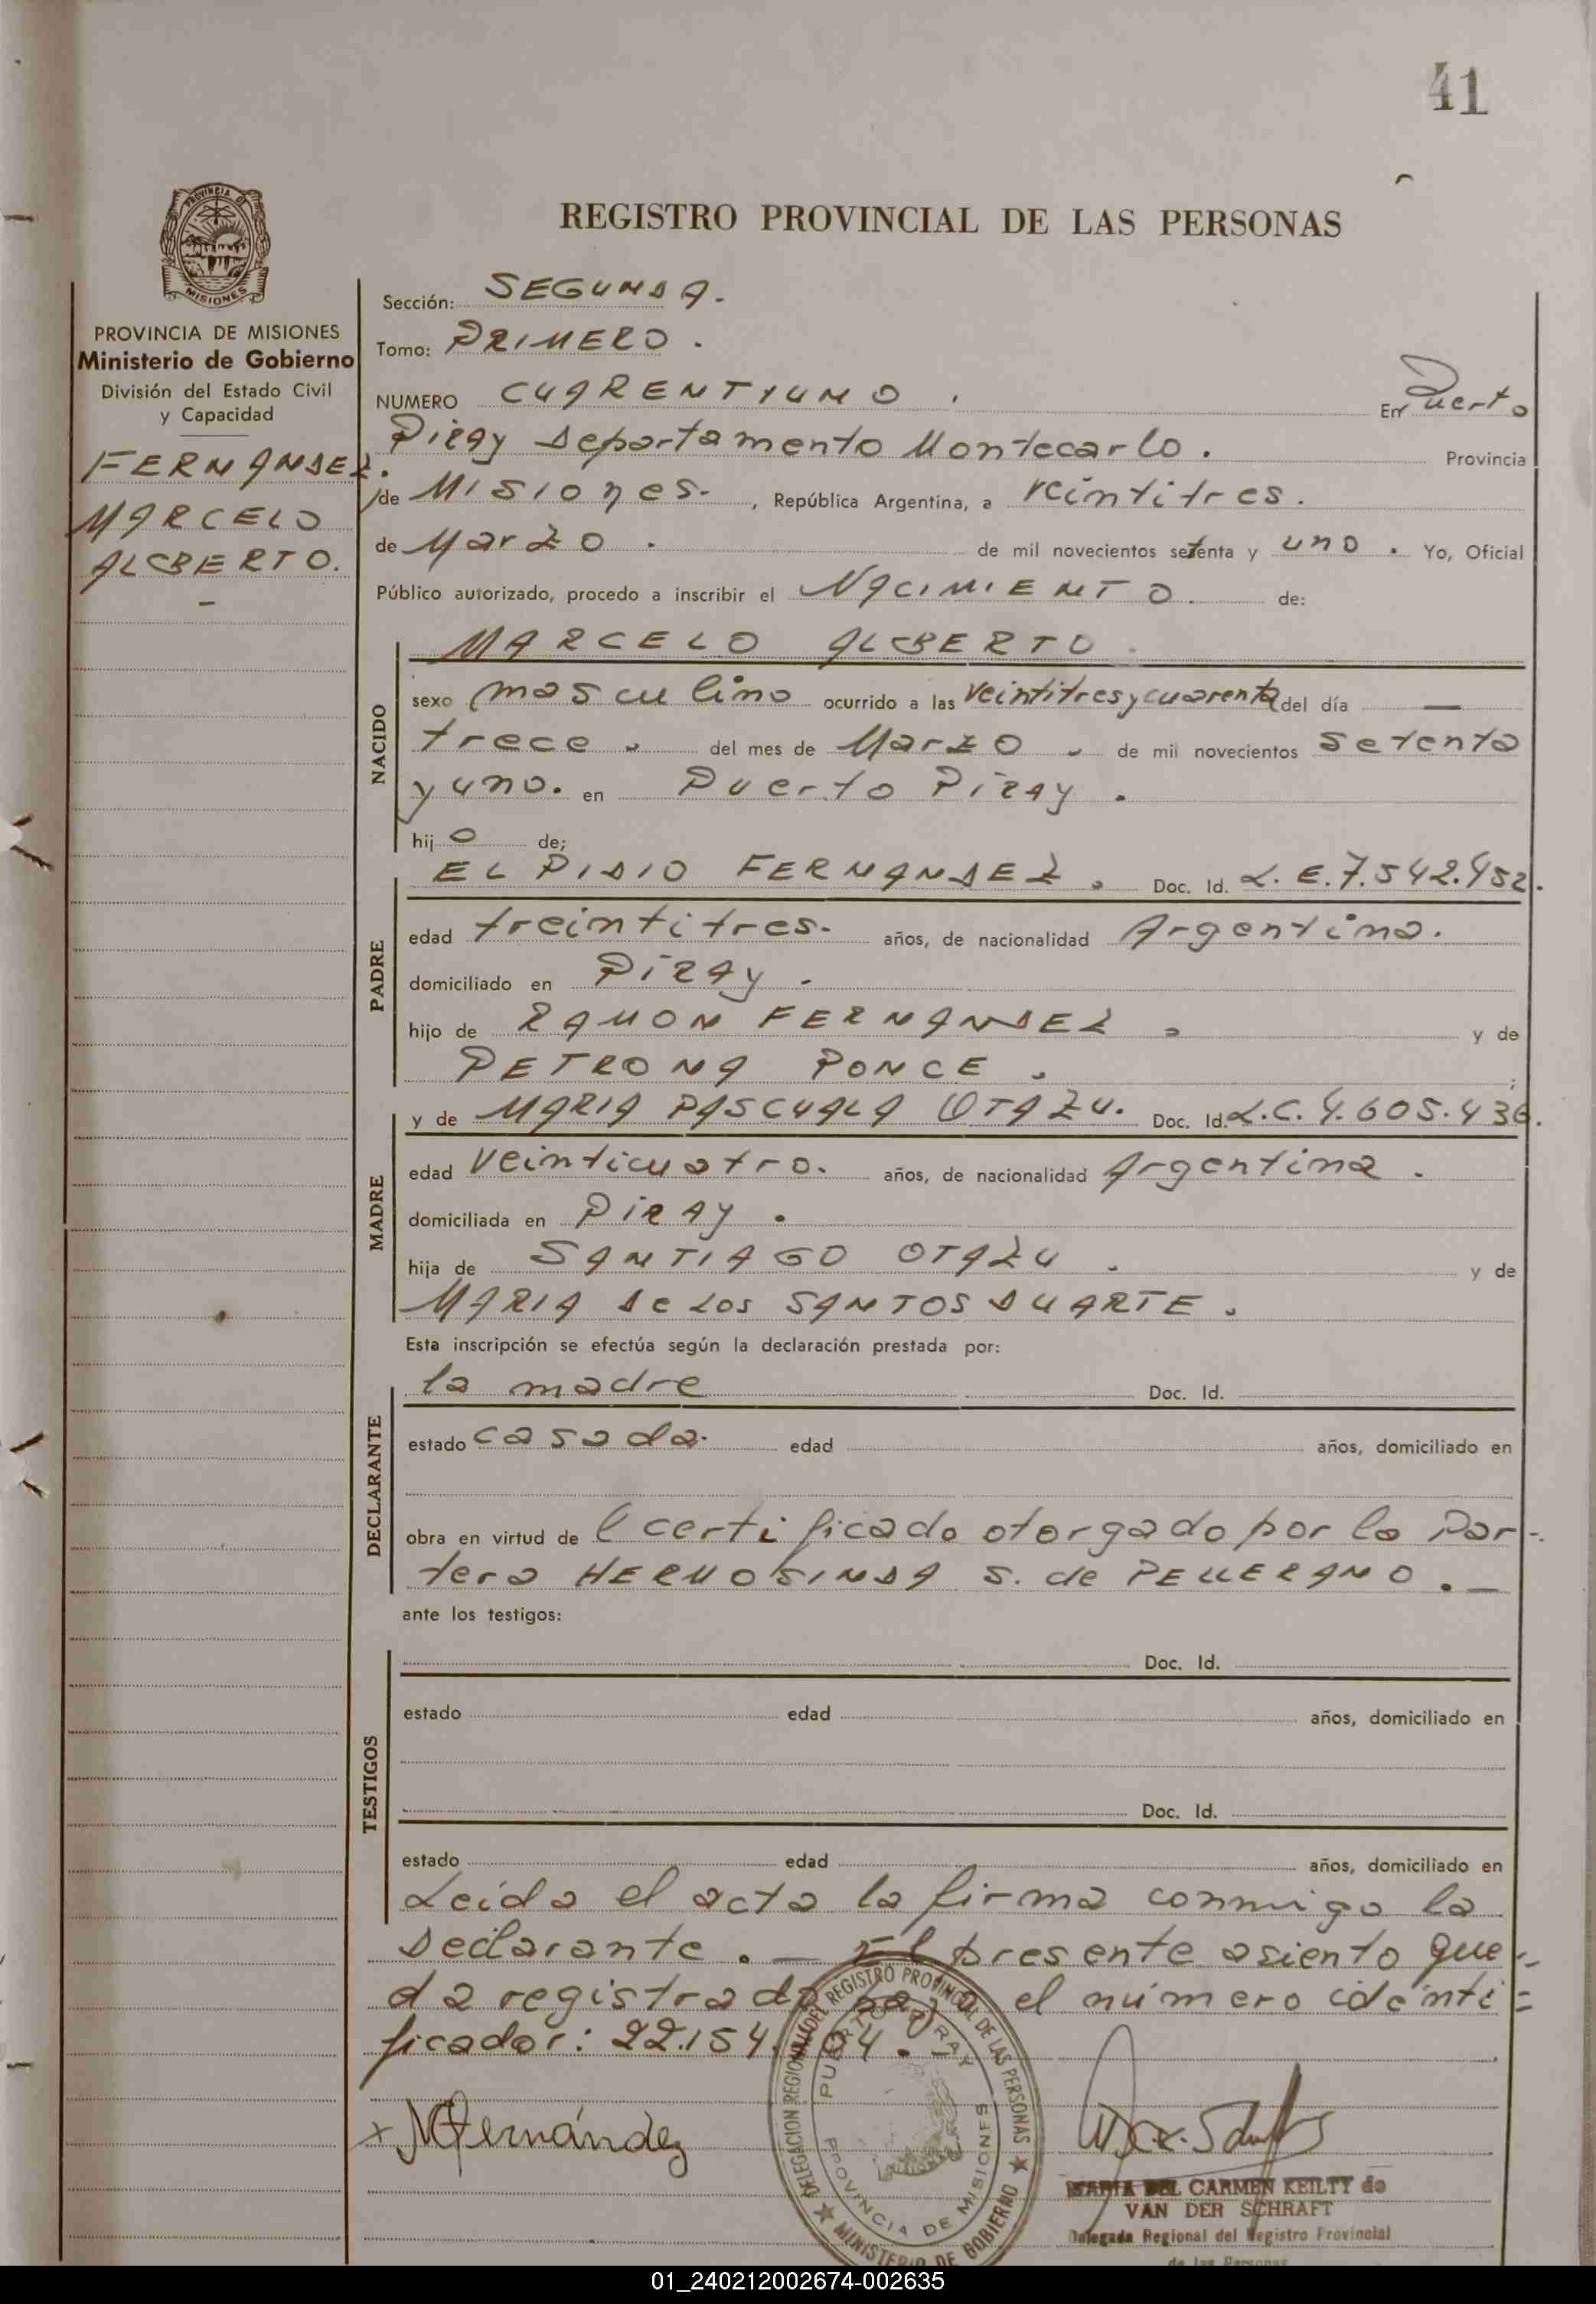 41
REGISTRO PROVINCIAL DE LAS PERSONAS
PROVINCIA DE MISIONES
PROVINCIA DE MISIONES
Ministerio de Gobierno
División del Estado Civil
y Capacidad
FERNANDEZ.
MARCELO
ALBERTO.
Sección: SEGUNDA.
Tomo: PRIMERO.
NUMERO CUARENTIUNO. En Puerto
Piray Departamento Montecarlo. Provincia
de Misiones., República Argentina, a veintitres.
de Marzo. de mil novecientos setenta y uno. Yo, Oficial
Público autorizado, procedo a inscribir el NACIMIENTO. de:
NACIDO
MARCELO ALBERTO.
sexo masculino ocurrido a las veintitres y cuarenta del día —
trece. del mes de Marzo. de mil novecientos setenta
y uno. en Puerto Piray.
hijo de;
PADRE
ELPIDIO FERNANDEZ. Doc. Id. L.E.7.542.452.
edad treintitres. años, de nacionalidad Argentina.
domiciliado en Piray.
hijo de RAMON FERNANDEZ. y de
PETRONA PONCE.;
MADRE
y de MARIA PASCUALA OTAZU. Doc. Id. L.C.4.605.436.
edad veinticuatro. años, de nacionalidad Argentina.
domiciliada en Piray.
hija de SANTIAGO OTAZU. y de
MARIA De Los SANTOS DUARTE.
Esta inscripción se efectúa según la declaración prestada por:
DECLARANTE
la madre Doc. Id.
estado casada. edad años, domiciliado en
obra en virtud de l certificado otorgado por la Par-
tera HERMOSINDA S. de PELLERANO.—
ante los testigos:
TESTIGOS
Doc. Id.
estado edad años, domiciliado en
Doc. Id.
estado edad años, domiciliado en
Leida el acta la firma conmigo la
Declarante.— El presente asiento que-
da registrado bajo el número identi=
ficador: 22.154. 04.-
x MFernández
DELEGACION REGIONAL DEL REGISTRO PROVINCIAL DE LAS PERSONAS ★ MINISTERIO DE GOBIERNO ★
PUERTO PIRAY
PROVINCIA DE MISIONES
MARIA DEL CARMEN KEILTY de
VAN DER SCHRAFT
Delegada Regional del Registro Provincial
de las Personas
01_240212002674-002635